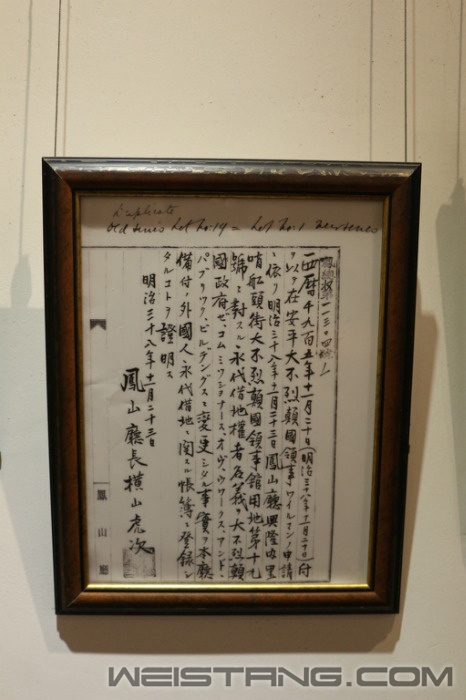 Duplicate
Old Series Lot No: 19 = Lot No: 1 New Series
西曆千九百五年十一月二十日(明治三十八年十一月二十日)付
ヲ以テ在安平大不烈顛國領事ワイルマンノ申請
ニ依リ明治三十八年十一月二十三日鳳山廳興隆內里
哨船頭街大不烈顛國領事館用地第十七
號ニ對スル永代借地權者名義ヲ大不烈顛
國政府ゼ、コムミッショナース、オヴ、ウワークス、アンド、
パブリック、ビルヂングスニ變更シタル事實ヲ本廳
備付ノ外國人永代借地ニ関スル帳簿ニ登錄シ
タルコトヲ證明ス
明治三十八年十一月二十三日
鳳山廳長橫山虎次
鳳山廳
WEISTANG.COM